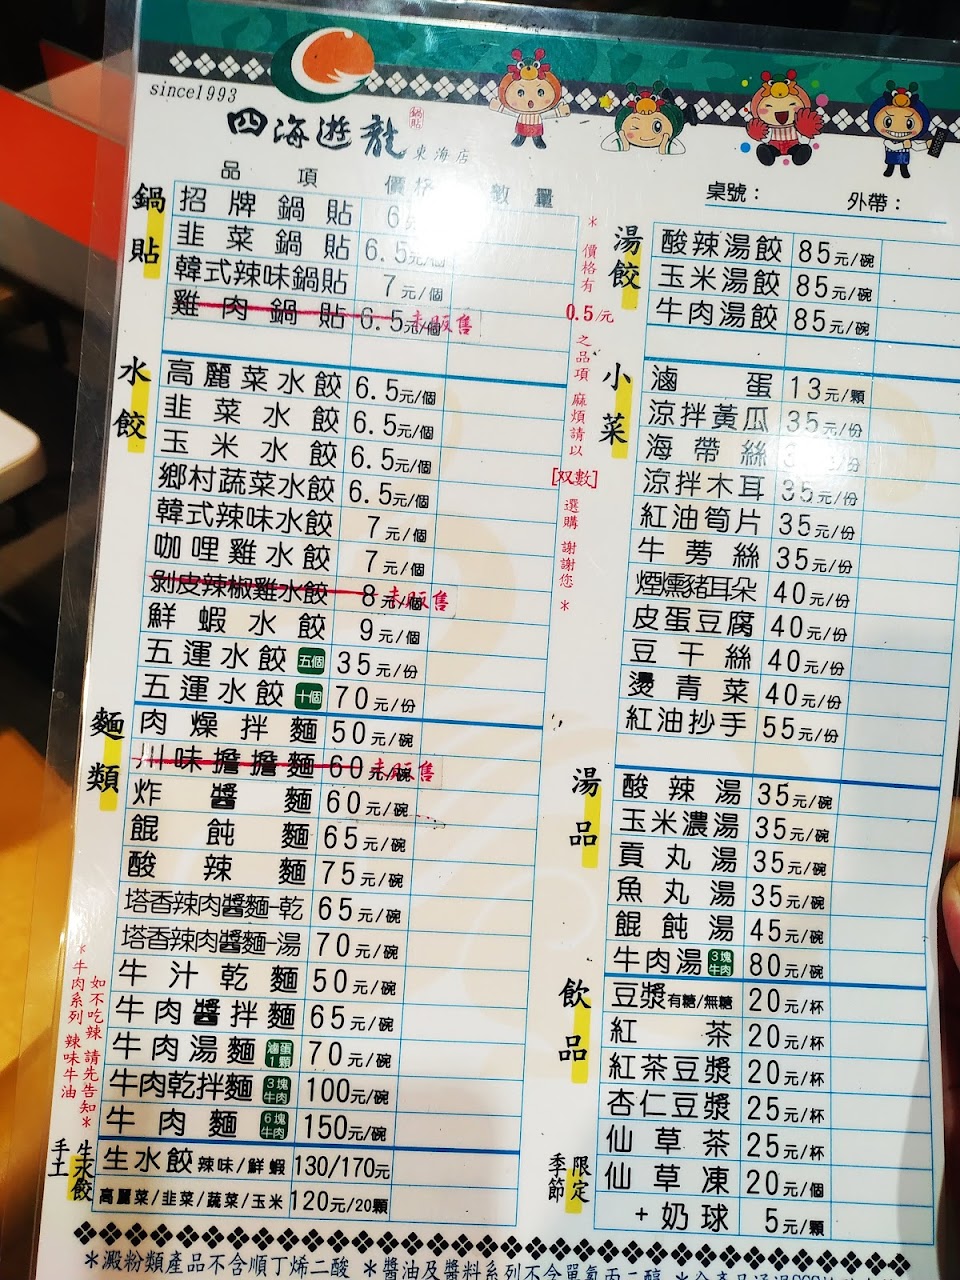 since1993
四海遊龍 鍋貼 東海店
品項 價格 數量
桌號： 外帶：
鍋貼
招牌鍋貼 6
韭菜鍋貼 6.5元/個
韓式辣味鍋貼 7元/個
雞肉鍋貼 6.5元/個 未販售
水餃
高麗菜水餃 6.5元/個
韭菜水餃 6.5元/個
玉米水餃 6.5元/個
鄉村蔬菜水餃 6.5元/個
韓式辣味水餃 7元/個
咖哩雞水餃 7元/個
剝皮辣椒雞水餃 8元/個 未販售
鮮蝦水餃 9元/個
五運水餃 五個 35元/份
五運水餃 十個 70元/份
麵類
肉燥拌麵 50元/碗
川味擔擔麵 60元/碗 未販售
炸醬麵 60元/碗
餛飩麵 65元/碗
酸辣麵 75元/碗
塔香辣肉醬麵-乾 65元/碗
塔香辣肉醬麵-湯 70元/碗
牛汁乾麵 50元/碗
牛肉醬拌麵 65元/碗
牛肉湯麵 滷蛋1顆 70元/碗
牛肉乾拌麵 3塊牛肉 100元/碗
牛肉麵 6塊牛肉 150元/碗
＊牛肉系列 辣味牛油
如不吃辣 請先告知＊
手工生水餃
生水餃 辣味/鮮蝦 130/170元
高麗菜/韭菜/蔬菜/玉米 120元/20顆
＊價格有
0.5/元
之品項 麻煩請以
[双數]
選購 謝謝您＊
湯餃
酸辣湯餃 85元/碗
玉米湯餃 85元/碗
牛肉湯餃 85元/碗
小菜
滷蛋 13元/顆
涼拌黃瓜 35元/份
海帶絲 元/份
涼拌木耳 35元/份
紅油筍片 35元/份
牛蒡絲 35元/份
煙燻豬耳朵 40元/份
皮蛋豆腐 40元/份
豆干絲 40元/份
燙青菜 40元/份
紅油抄手 55元/份
湯品
酸辣湯 35元/碗
玉米濃湯 35元/碗
貢丸湯 35元/碗
魚丸湯 35元/碗
餛飩湯 45元/碗
牛肉湯 3塊牛肉 80元/碗
飲品
豆漿有糖/無糖 20元/杯
紅茶 20元/杯
紅茶豆漿 20元/杯
杏仁豆漿 25元/杯
季節限定
仙草茶 25元/杯
仙草凍 20元/個
+奶球 5元/顆
＊澱粉類產品不含順丁烯二酸 ＊醬油及醬料系列不含單氯丙二醇